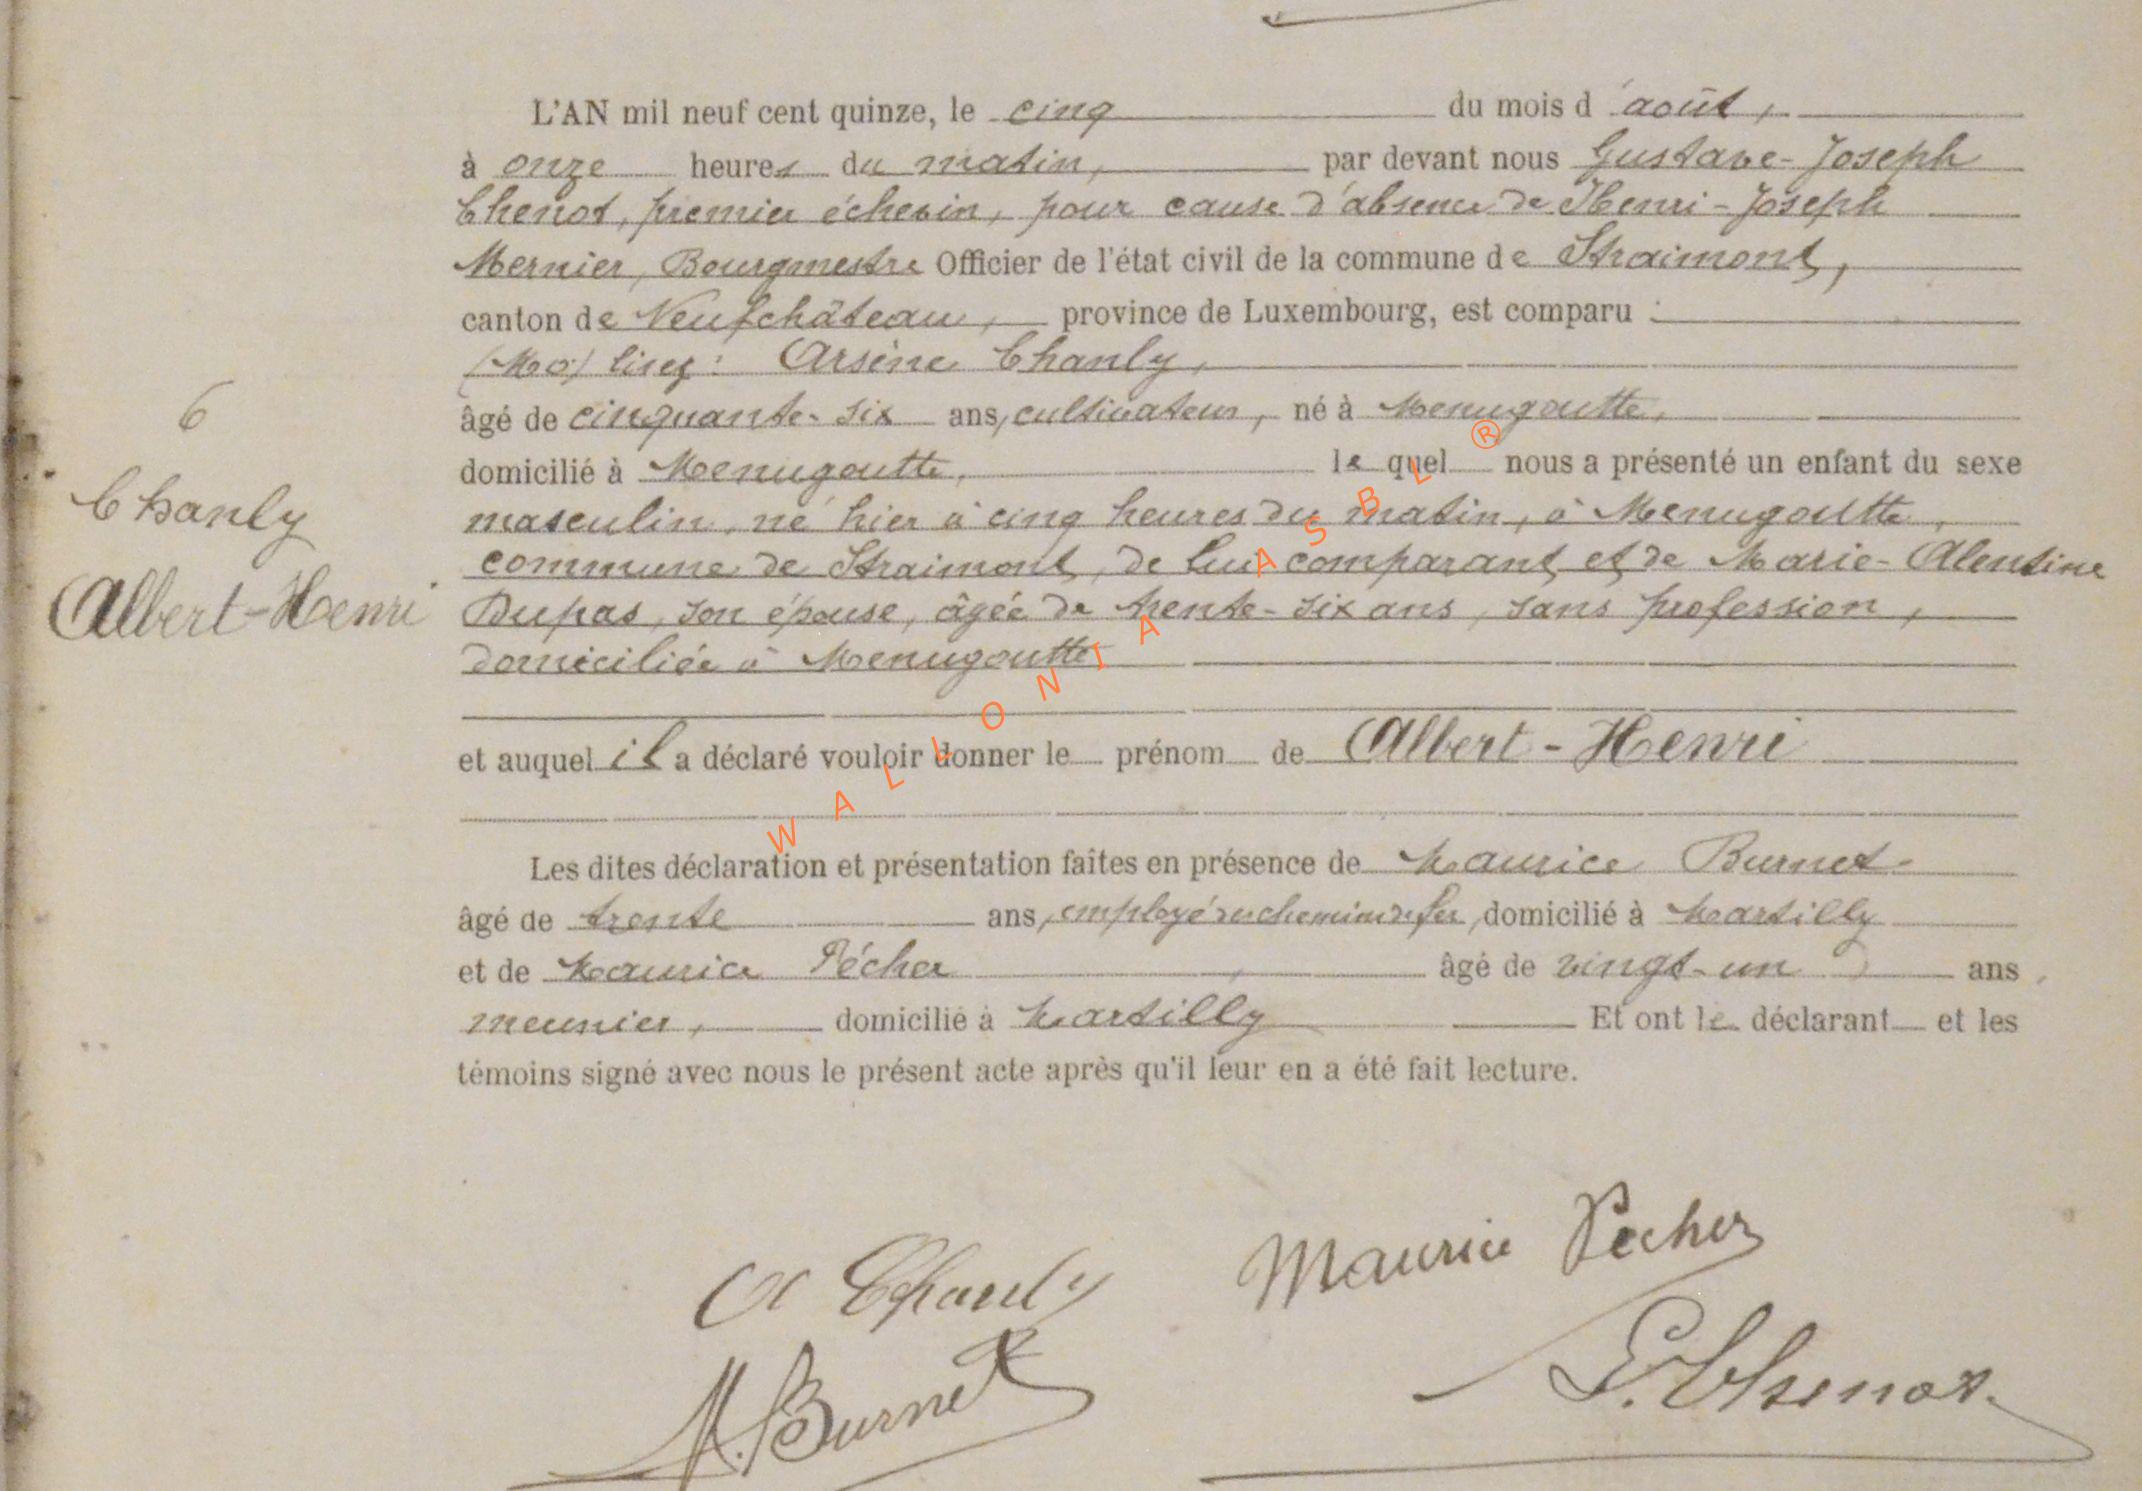 L'AN mil neuf cent quinze, le cinq du mois d'août,
à onze heures du matin, par devant nous Gustave-Joseph
Chenot, premier échevin, pour cause d'absence de Henri-Joseph
Mernier, Bourgmestre Officier de l'état civil de la commune de Straimont,
canton de Neufchâteau, province de Luxembourg, est comparu :
lisez : Arsène Chanly,
âgé de cinquante-six ans, cultivateur, né à Menugoutte,
domicilié à Menugoutte, lequel nous a présenté un enfant du sexe
masculin, né hier à cinq heures du matin, à Menugoutte,
commune de Straimont, de lui comparant et de Marie-Alentine
Dupas, son épouse, âgée de trente-six ans, sans profession,
domiciliée à Menugoutte
et auquel il a déclaré vouloir donner le prénom de Albert-Henri
Les dites déclaration et présentation faites en présence de Maurice Burnet
âgé de trente ans, employé au chemin de fer, domicilié à Martilly
et de Maurice Pécher âgé de vingt-un ans,
meunier, domicilié à Martilly Et ont le déclarant et les
témoins signé avec nous le présent acte après qu'il leur en a été fait lecture.
6
Chanly
Albert-Henri
A Chanly
Maurice Pecher
M. Burnet
G. Chenot
WALLONIA ASBL ®